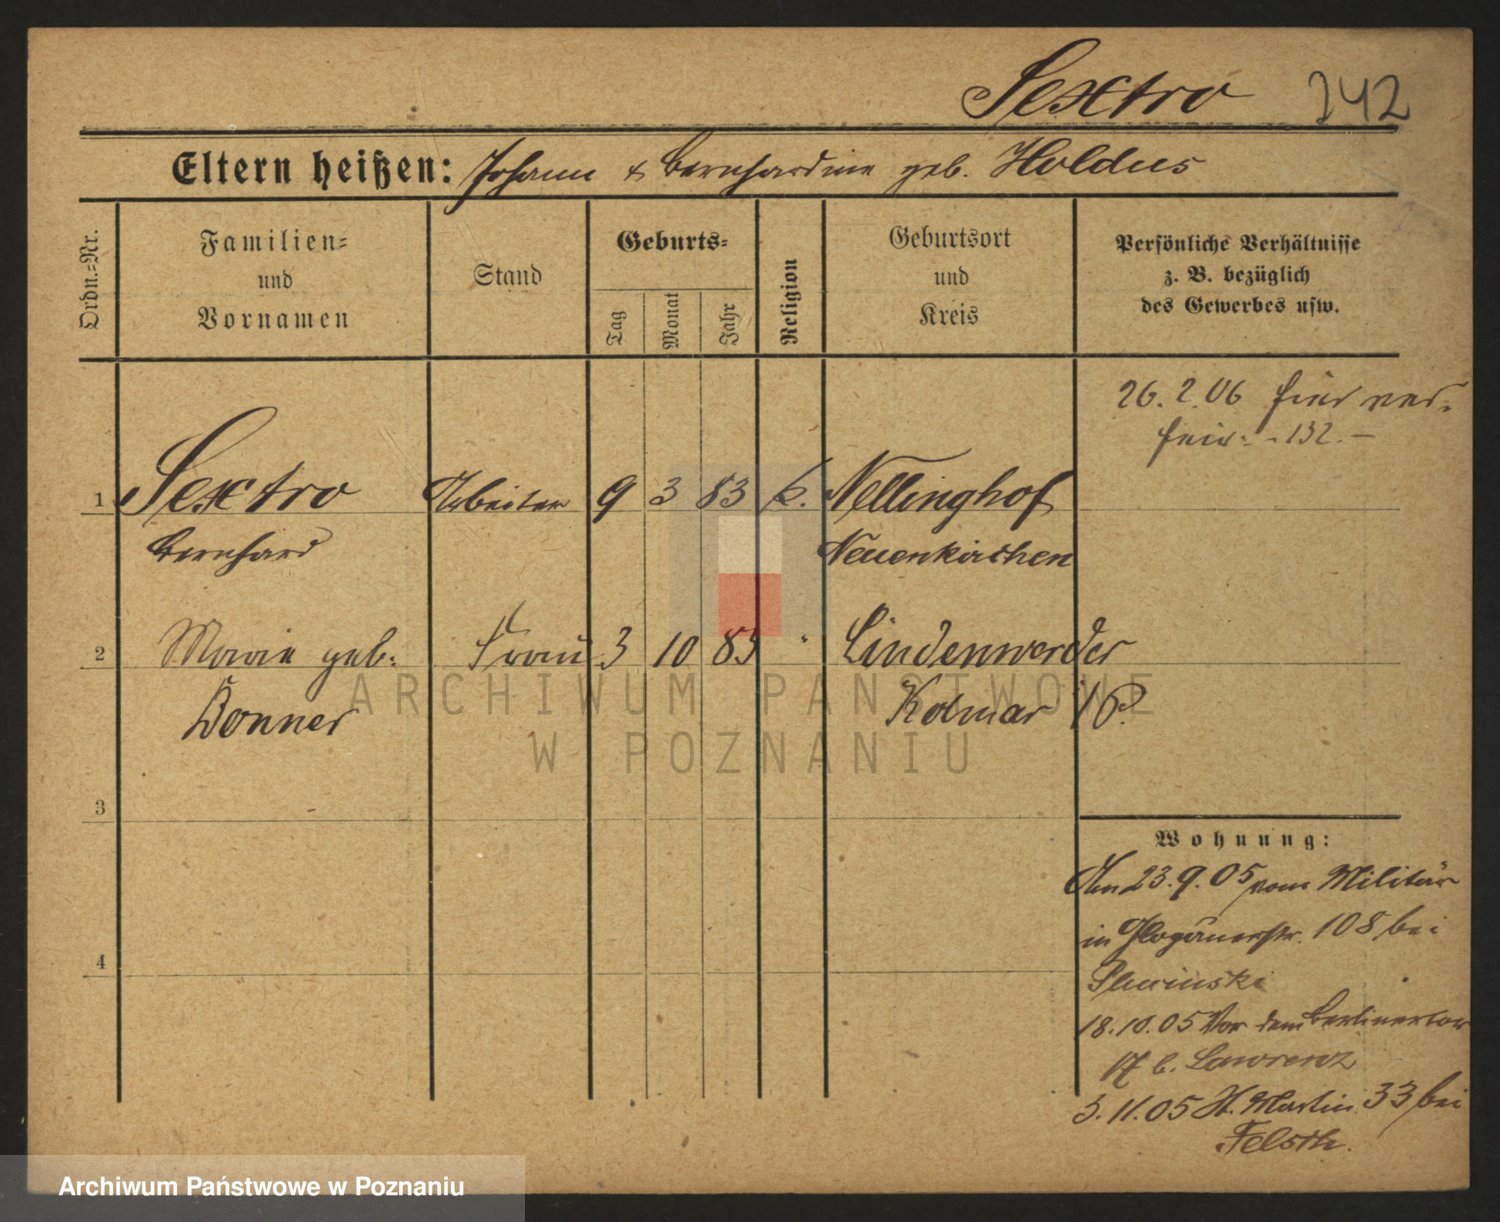 Sextro 242
Eltern heißen: Johann & Bernhardine geb. Holdus
Ordn.-Nr.
Familien-
und
Vornamen
Stand
Geburts-
Tag
Monat
Jahr
Religion
Geburtsort
und
Kreis
Persönliche Verhältnisse
z. B. bezüglich
des Gewerbes usw.
26.2.06 hier ver-
heir. - 132. -
1 Sextro Arbeiter 9 3 83 k. Nellinghof
Bernhard Neuenkirchen
2 Marie geb. Frau 3 10 83 " Lindenwerder
Donner Kolmar i/P.
3
4
Wohnung:
Am 23.9.05 vom Militär
in Glogauerstr. 108 bei
18.10.05 Vor dem Berlinertor
b. Lawrenz
3.11.05 St. Martin 33 bei
ARCHIWUM PAŃSTWOWE
W POZNANIU
Archiwum Państwowe w Poznaniu